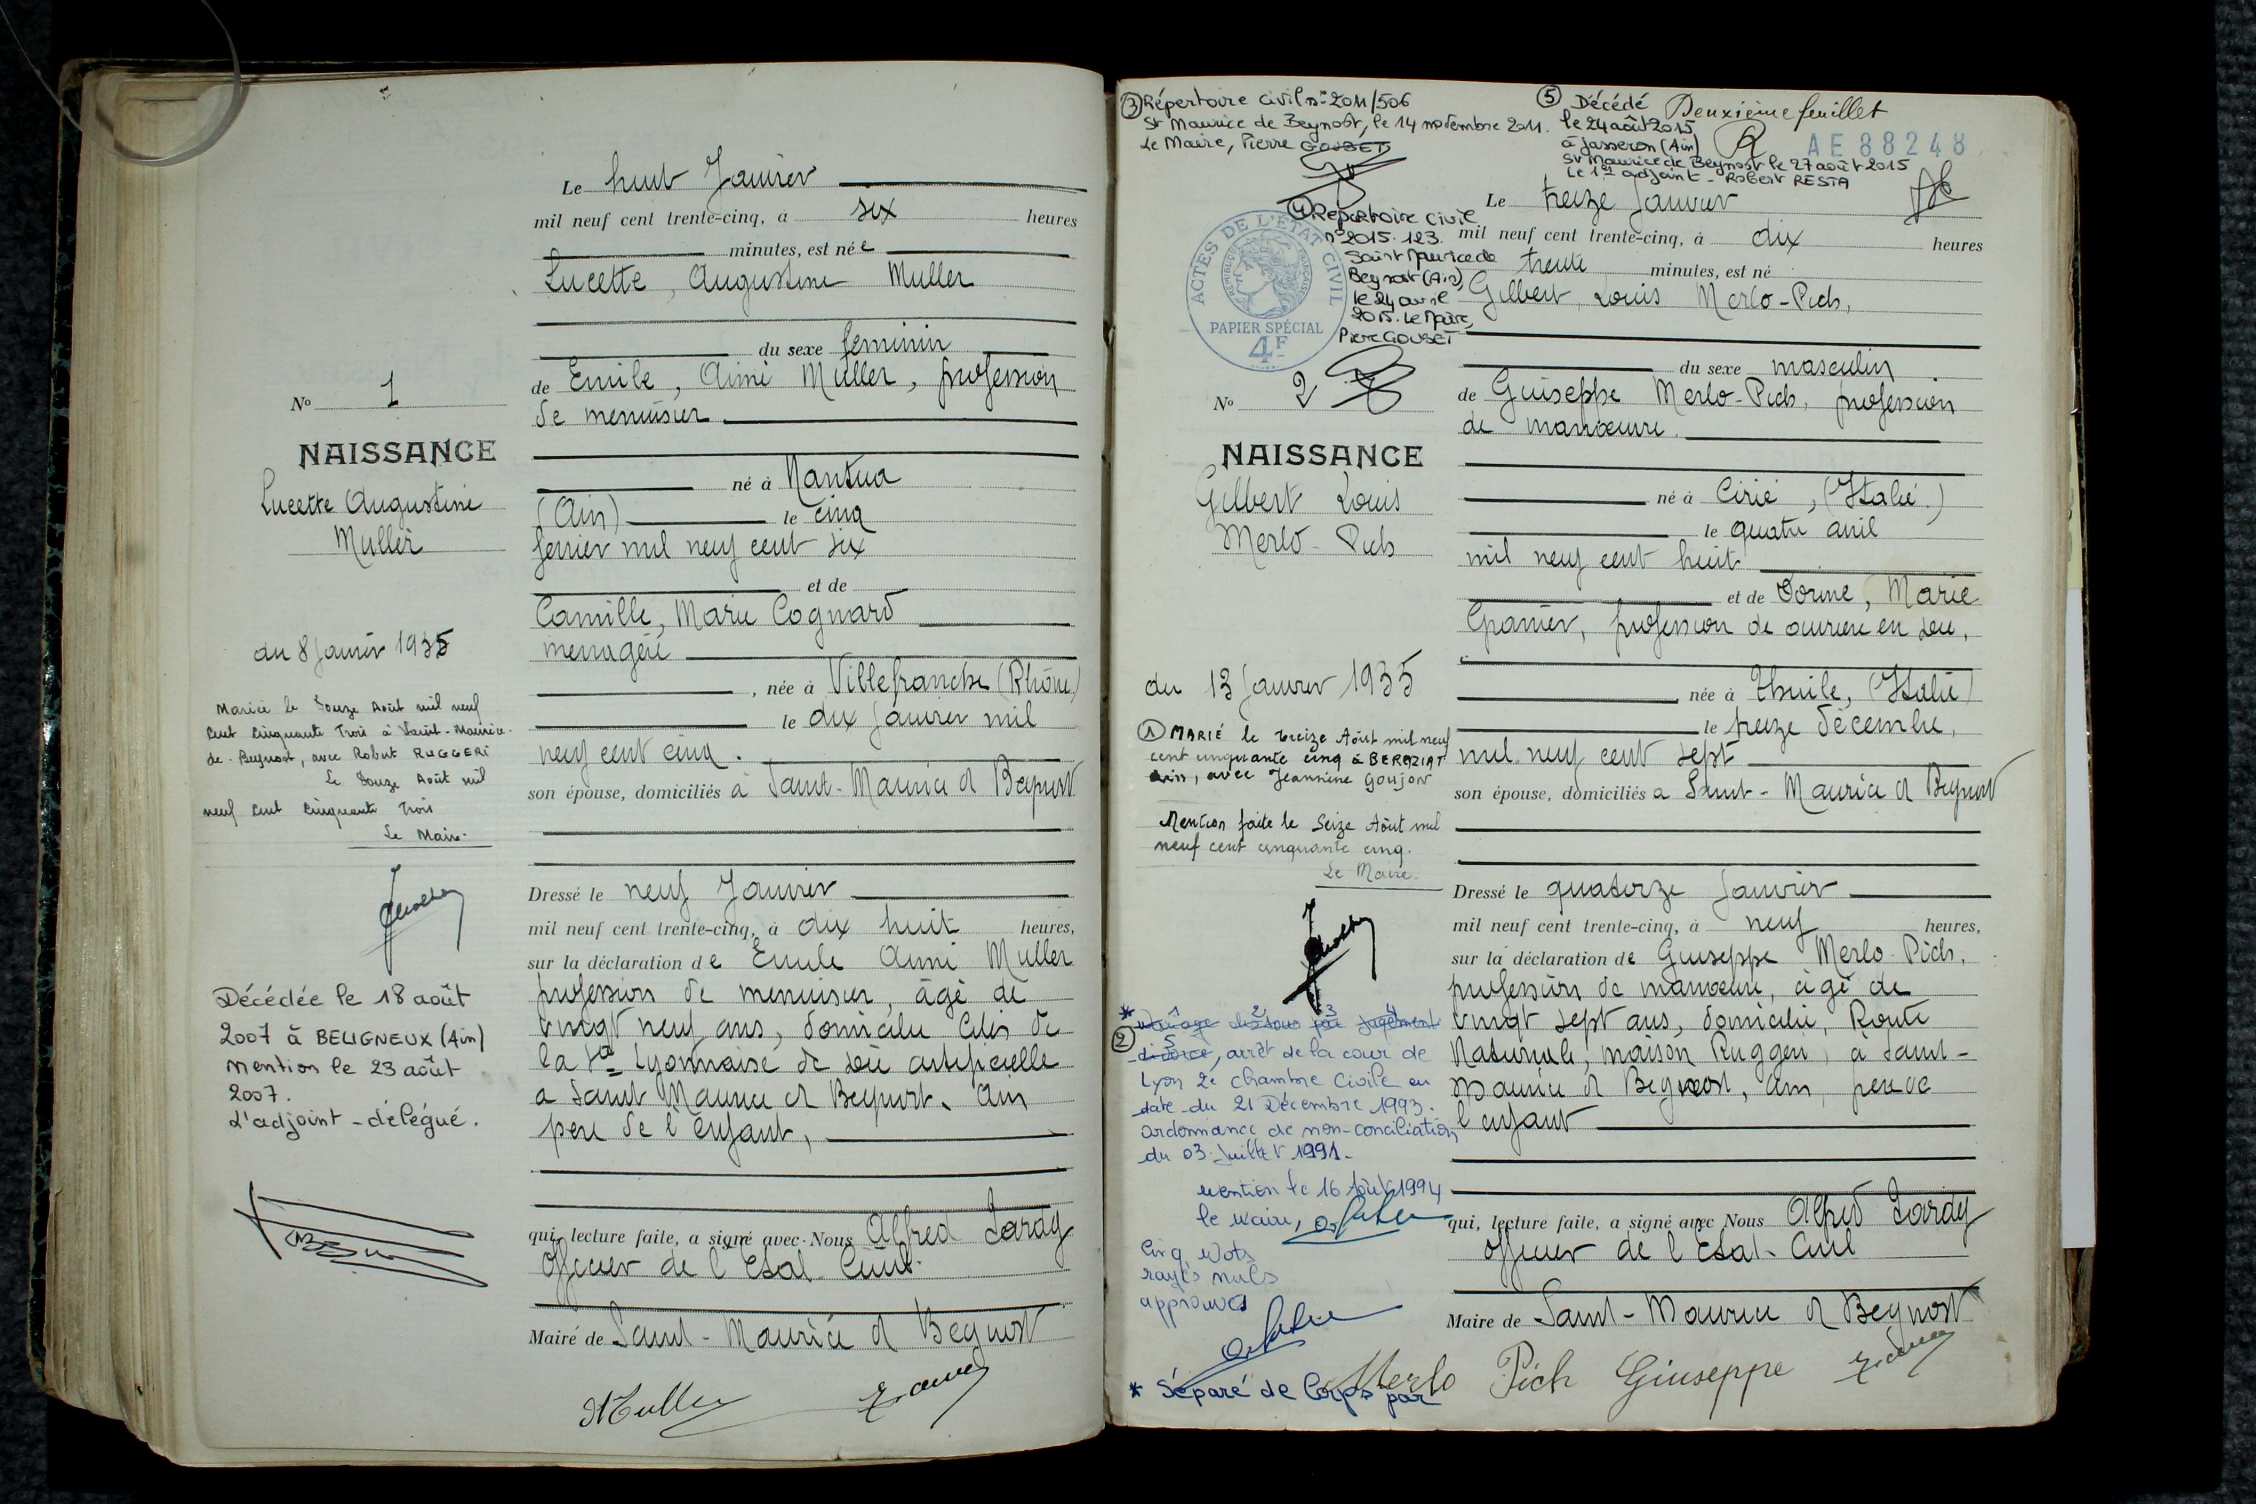 Le huit Janvier
mil neuf cent trente-cinq, à six heures
minutes, est née
Lucette, Augustine Muller
du sexe féminin
de Emile, Aimé Muller, profession
de menuisier
né à Nantua
(Ain) le cinq
février mil neuf cent six
et de
Camille, Marie Cognard
ménagère
, née à Villefranche (Rhône)
le dix Janvier mil
neuf cent cinq.
son épouse, domiciliés à Saint-Maurice d Beynost
Dressé le neuf Janvier
mil neuf cent trente-cinq, à dix huit heures,
sur la déclaration de Emile Aimé Muller
profession de menuisier, âgé de
vingt neuf ans, domicilié Cités de
la Sté Lyonnaise de soie artificielle
a Saint Maurice d Beynost. Ain
père de l'enfant,
qui, lecture faite, a signé avec Nous Alfred
Officier de l'Etat-Civil.
Maire de Saint-Maurice d Beynost
Muller
No 1
NAISSANCE
Lucette Augustine
Muller
du 8 Janvier 1935
Mariée le Douze Août mil neuf
cent cinquante Trois à Saint-Maurice-
de-Beynost, avec Robert RUGGERI
Le Douze Août mil
neuf cent cinquante Trois
Le Maire.
Décédée le 18 août
2007 à BELIGNEUX (Ain)
mention le 23 août
2007.
L'adjoint-délégué.
③ Répertoire civil n° 2011/506
St Maurice de Beynost, le 14 novembre 2011.
Le Maire, Pierre GOUBET
⑤ Décédé
le 24 août 2015
à Jasseron (Ain)
St Maurice de Beynost le 27 août 2015
Le 1er adjoint - Robert RESTA
Deuxième feuillet
AE 88248
④ Répertoire Civil
n° 2015.123.
Saint Maurice de
Beynost (Ain),
le 24 avril
2015. Le Maire,
Pierre GOUBET
ACTES DE L'ÉTAT CIVIL
RÉPUBLIQUE FRANÇAISE
PAPIER SPÉCIAL
4F
No 2
NAISSANCE
Gilbert Louis
Merlo-Pich
du 13 Janvier 1935
① MARIÉ le treize Août mil neuf
cent cinquante cinq à BEREZIAT
Ain, avec Jeannine Goujon
Mention faite le Seize Août mil
neuf cent cinquante cinq.
Le Maire.
* Mariage dissous par jugement
② divorce, arrêt de la cour de
Lyon 2e chambre Civile en
date du 21 Décembre 1993.
ordonnance de non-conciliation
du 03 Juillet 1991.
mention le 16 Août 1994
le Maire,
Cinq Mots
rayés nuls
approuvés
* Séparé de Corps par
Le treize Janvier
mil neuf cent trente-cinq, à dix heures
trente minutes, est né
Gilbert, Louis Merlo-Pich,
du sexe masculin
de Guiseppe Merlo-Pich, profession
de manœuvre.
né à Cirié, (Italie.)
le quatre avril
mil neuf cent huit
et de Dorine, Marie
Granier, profession de ouvrière en soie,
née à Thuile, (Italie)
le treize décembre,
mil neuf cent sept
son épouse, domiciliés a Saint-Maurice d Beynost
Dressé le quatorze Janvier
mil neuf cent trente-cinq, à neuf heures,
sur la déclaration de Guiseppe Merlo-Pich,
profession de manœuvre, âgé de
vingt sept ans, domicilié, Route
Nationale, maison Ruggeri, à Saint-
Maurice d Beynost, Ain, père de
l'enfant
qui, lecture faite, a signé avec Nous Alfred
Officier de l'Etat-Civil
Maire de Saint-Maurice d Beynost
Merlo Pich Giuseppe